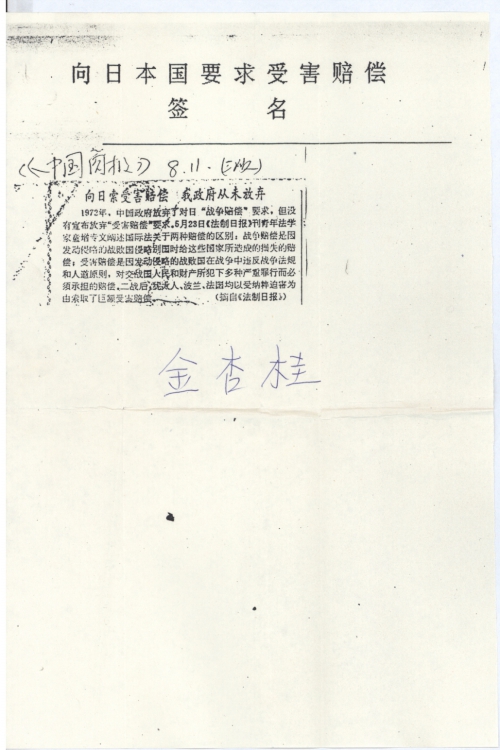 向日本国要求受害赔偿
签名
《中国商报》 8.11. (三版)
向日索受害赔偿 我政府从未放弃
1972年,中国政府放弃了对日“战争赔偿”要求,但没
有宣布放弃“受害赔偿”要求。5月23日《法制日报》刊青年法学
家童增专文阐述国际法关于两种赔偿的区别:战争赔偿是因
发动侵略的战败国侵略别国时给这些国家所造成的损失的赔
偿;受害赔偿是因发动侵略的战败国在战争中违反战争法规
和人道原则,对交战国人民和财产所犯下多种严重罪行而必
须承担的赔偿。二战后,犹太人、波兰、法国均以受纳粹迫害为
由索取了巨额受害赔偿。 (摘自《法制日报》)
金杏桂